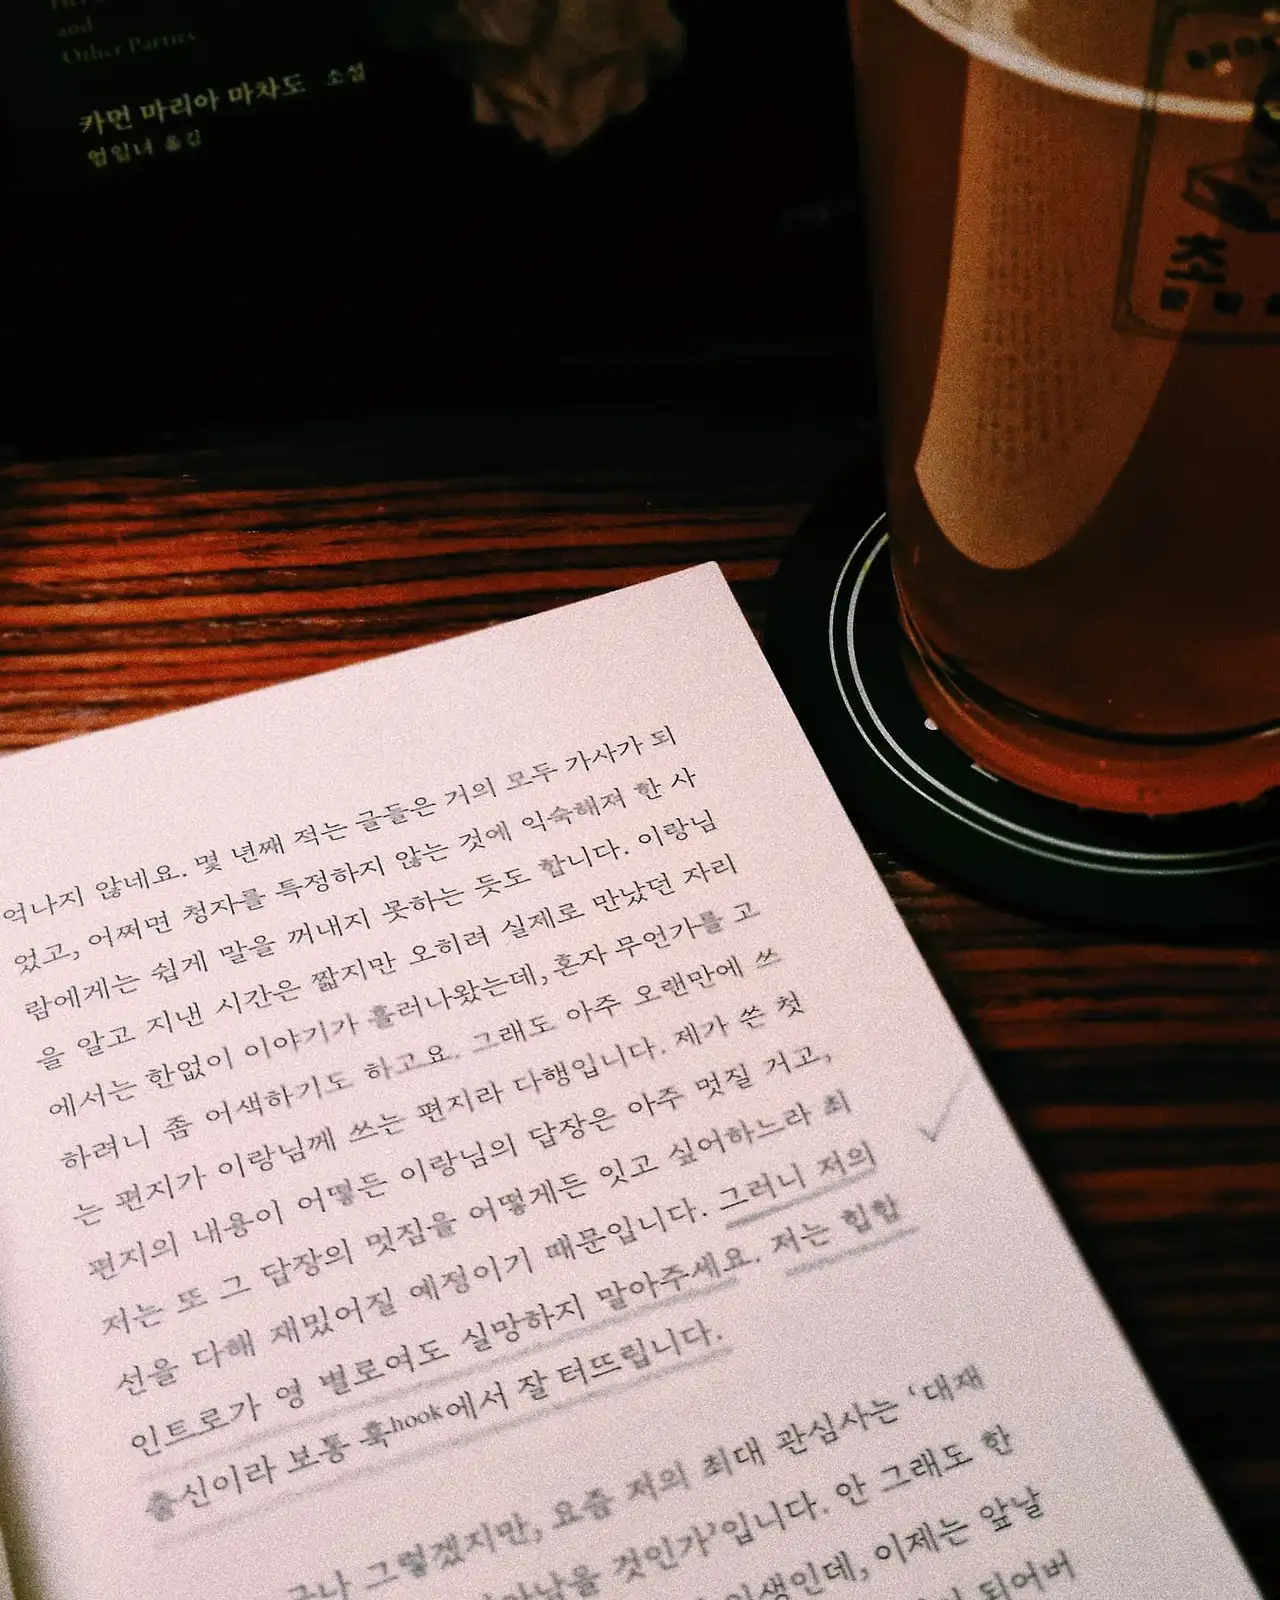 and
Other Parties
카먼 마리아 마차도 소설
엄일녀 옮김
초
억나지 않네요. 몇 년째 적는 글들은 거의 모두 가사가 되
었고, 어쩌면 청자를 특정하지 않는 것에 익숙해져 한 사
람에게는 쉽게 말을 꺼내지 못하는 듯도 합니다. 이랑님
을 알고 지낸 시간은 짧지만 오히려 실제로 만났던 자리
에서는 한없이 이야기가 흘러나왔는데, 혼자 무언가를 고
하려니 좀 어색하기도 하고요. 그래도 아주 오랜만에 쓰
는 편지가 이랑님께 쓰는 편지라 다행입니다. 제가 쓴 첫
편지의 내용이 어떻든 이랑님의 답장은 아주 멋질 거고,
저는 또 그 답장의 멋짐을 어떻게든 잇고 싶어하느라 최
선을 다해 재밌어질 예정이기 때문입니다. 그러니 저의
인트로가 영 별로여도 실망하지 말아주세요. 저는 힙합
출신이라 보통 훅hook에서 잘 터뜨립니다.
그렇겠지만, 요즘 저의 최대 관심사는 ‘대재
것인가’입니다. 안 그래도 한
이제는 앞날
되어버